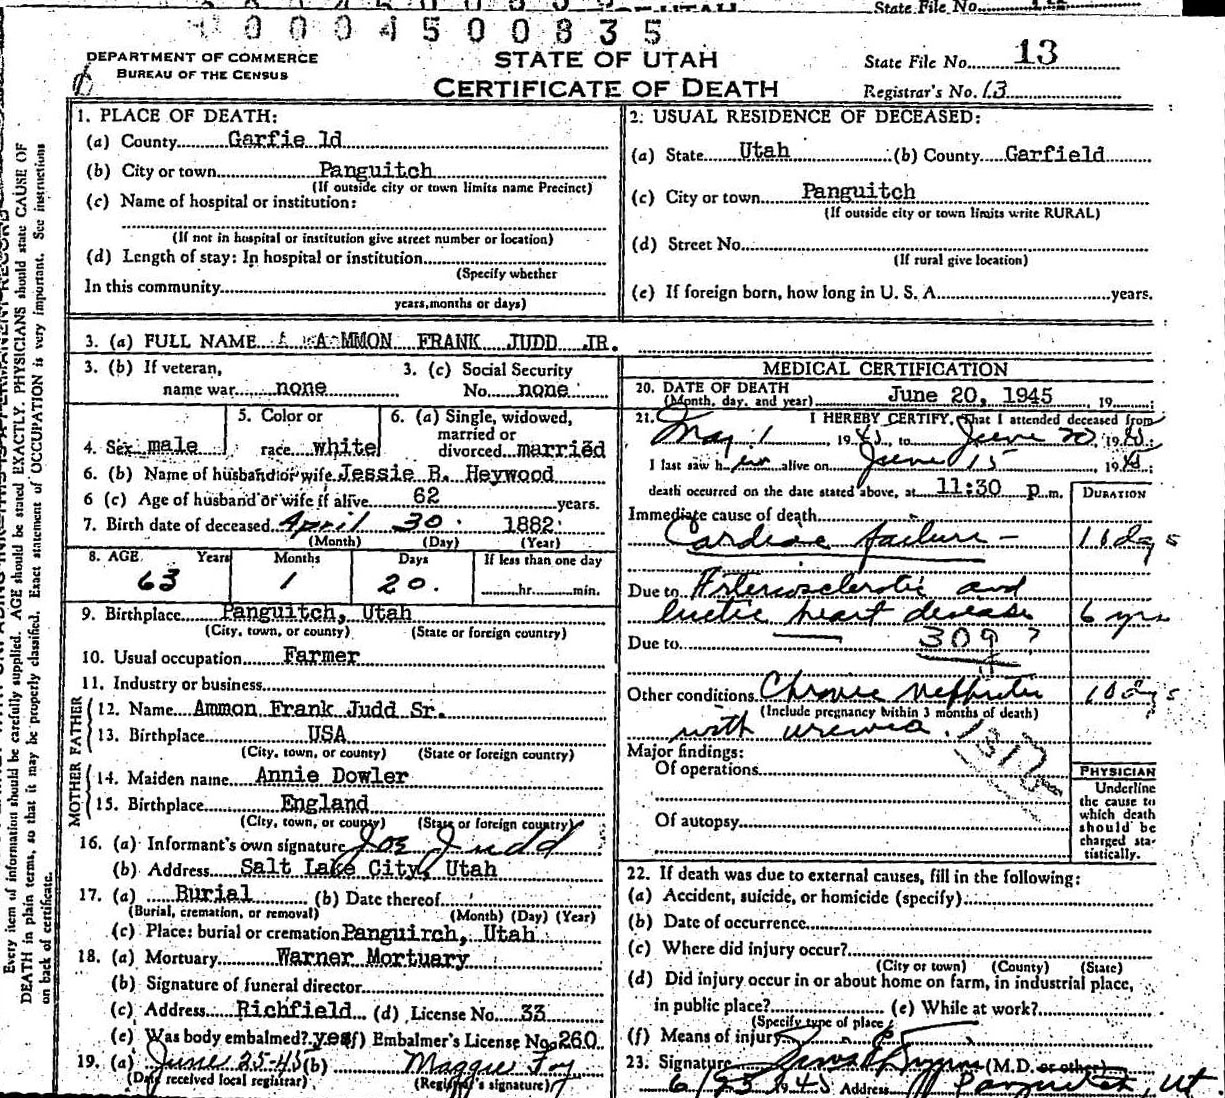 State File No.
0004500835
DEPARTMENT OF COMMERCE
BUREAU OF THE CENSUS
STATE OF UTAH
CERTIFICATE OF DEATH
State File No. 13
Registrar's No. 13
Every item of information should be carefully supplied. AGE should be stated EXACTLY. PHYSICIANS should state CAUSE OF
DEATH in plain terms, so that it may be properly classified. Exact statement of OCCUPATION is very important. See instructions
on back of certificate.
1. PLACE OF DEATH:
(a) County Garfie ld
(b) City or town Panguitch
(If outside city or town limits name Precinct)
(c) Name of hospital or institution:
(If not in hospital or institution give street number or location)
(d) Length of stay: In hospital or institution
(Specify whether
In this community
years, months or days)
2. USUAL RESIDENCE OF DECEASED:
(a) State Utah (b) County Garfield
(c) City or town Panguitch
(If outside city or town limits write RURAL)
(d) Street No.
(If rural give location)
(e) If foreign born, how long in U. S. A. years.
3. (a) FULL NAME AMMON FRANK JUDD JR.
3. (b) If veteran,
name war none
3. (c) Social Security
No. none
4. Sex male
5. Color or
race white
6. (a) Single, widowed,
married or
divorced married
6. (b) Name of husband or wife Jessie B. Heywood
6 (c) Age of husband or wife if alive 62 years.
7. Birth date of deceased April 30 1882
(Month) (Day) (Year)
8. AGE Years Months Days If less than one day
63 1 20. hr. min.
9. Birthplace Panguitch, Utah
(City, town, or county) (State or foreign country)
10. Usual occupation Farmer
11. Industry or business
FATHER
12. Name Ammon Frank Judd Sr.
13. Birthplace USA
(City, town, or county) (State or foreign country)
MOTHER
14. Maiden name Annie Dowler
15. Birthplace England
(City, town, or county) (State or foreign country)
16. (a) Informant's own signature Joe Judd
(b) Address Salt Lake City, Utah
17. (a) Burial (b) Date thereof
(Burial, cremation, or removal) (Month) (Day) (Year)
(c) Place: burial or cremation Panguirch, Utah
18. (a) Mortuary Warner Mortuary
(b) Signature of funeral director
(c) Address Richfield (d) License No. 33
(e) Was body embalmed? yes (f) Embalmer's License No. 260
19. (a) June 25-45 (b) Maggie Foy
(Date received local registrar) (Registrar's signature)
MEDICAL CERTIFICATION
20. DATE OF DEATH
(Month, day, and year) June 20, 1945 , 19
21. I HEREBY CERTIFY, That I attended deceased from
May 1, 1945, to June 20, 1945;
I last saw him alive on June 15 1945;
death occurred on the date stated above, at 11:30 p.m.
DURATION
Immediate cause of death
Cardiac failure - 10 dys
Due to Arteriosclerotic and
luetic heart disease 6 yrs
Due to 309 ?
Other conditions Chronic nephritis 10 dys
(Include pregnancy within 3 months of death)
with uremia.
Major findings:
Of operations
Of autopsy
PHYSICIAN
Underline
the cause to
which death
should be
charged sta-
tistically.
22. If death was due to external causes, fill in the following:
(a) Accident, suicide, or homicide (specify)
(b) Date of occurrence
(c) Where did injury occur?
(City or town) (County) (State)
(d) Did injury occur in or about home on farm, in industrial place,
in public place? (e) While at work?
(Specify type of place)
(f) Means of injury
23. Signature (M.D. or other)
6/25 1945 Address Panguitch, Ut